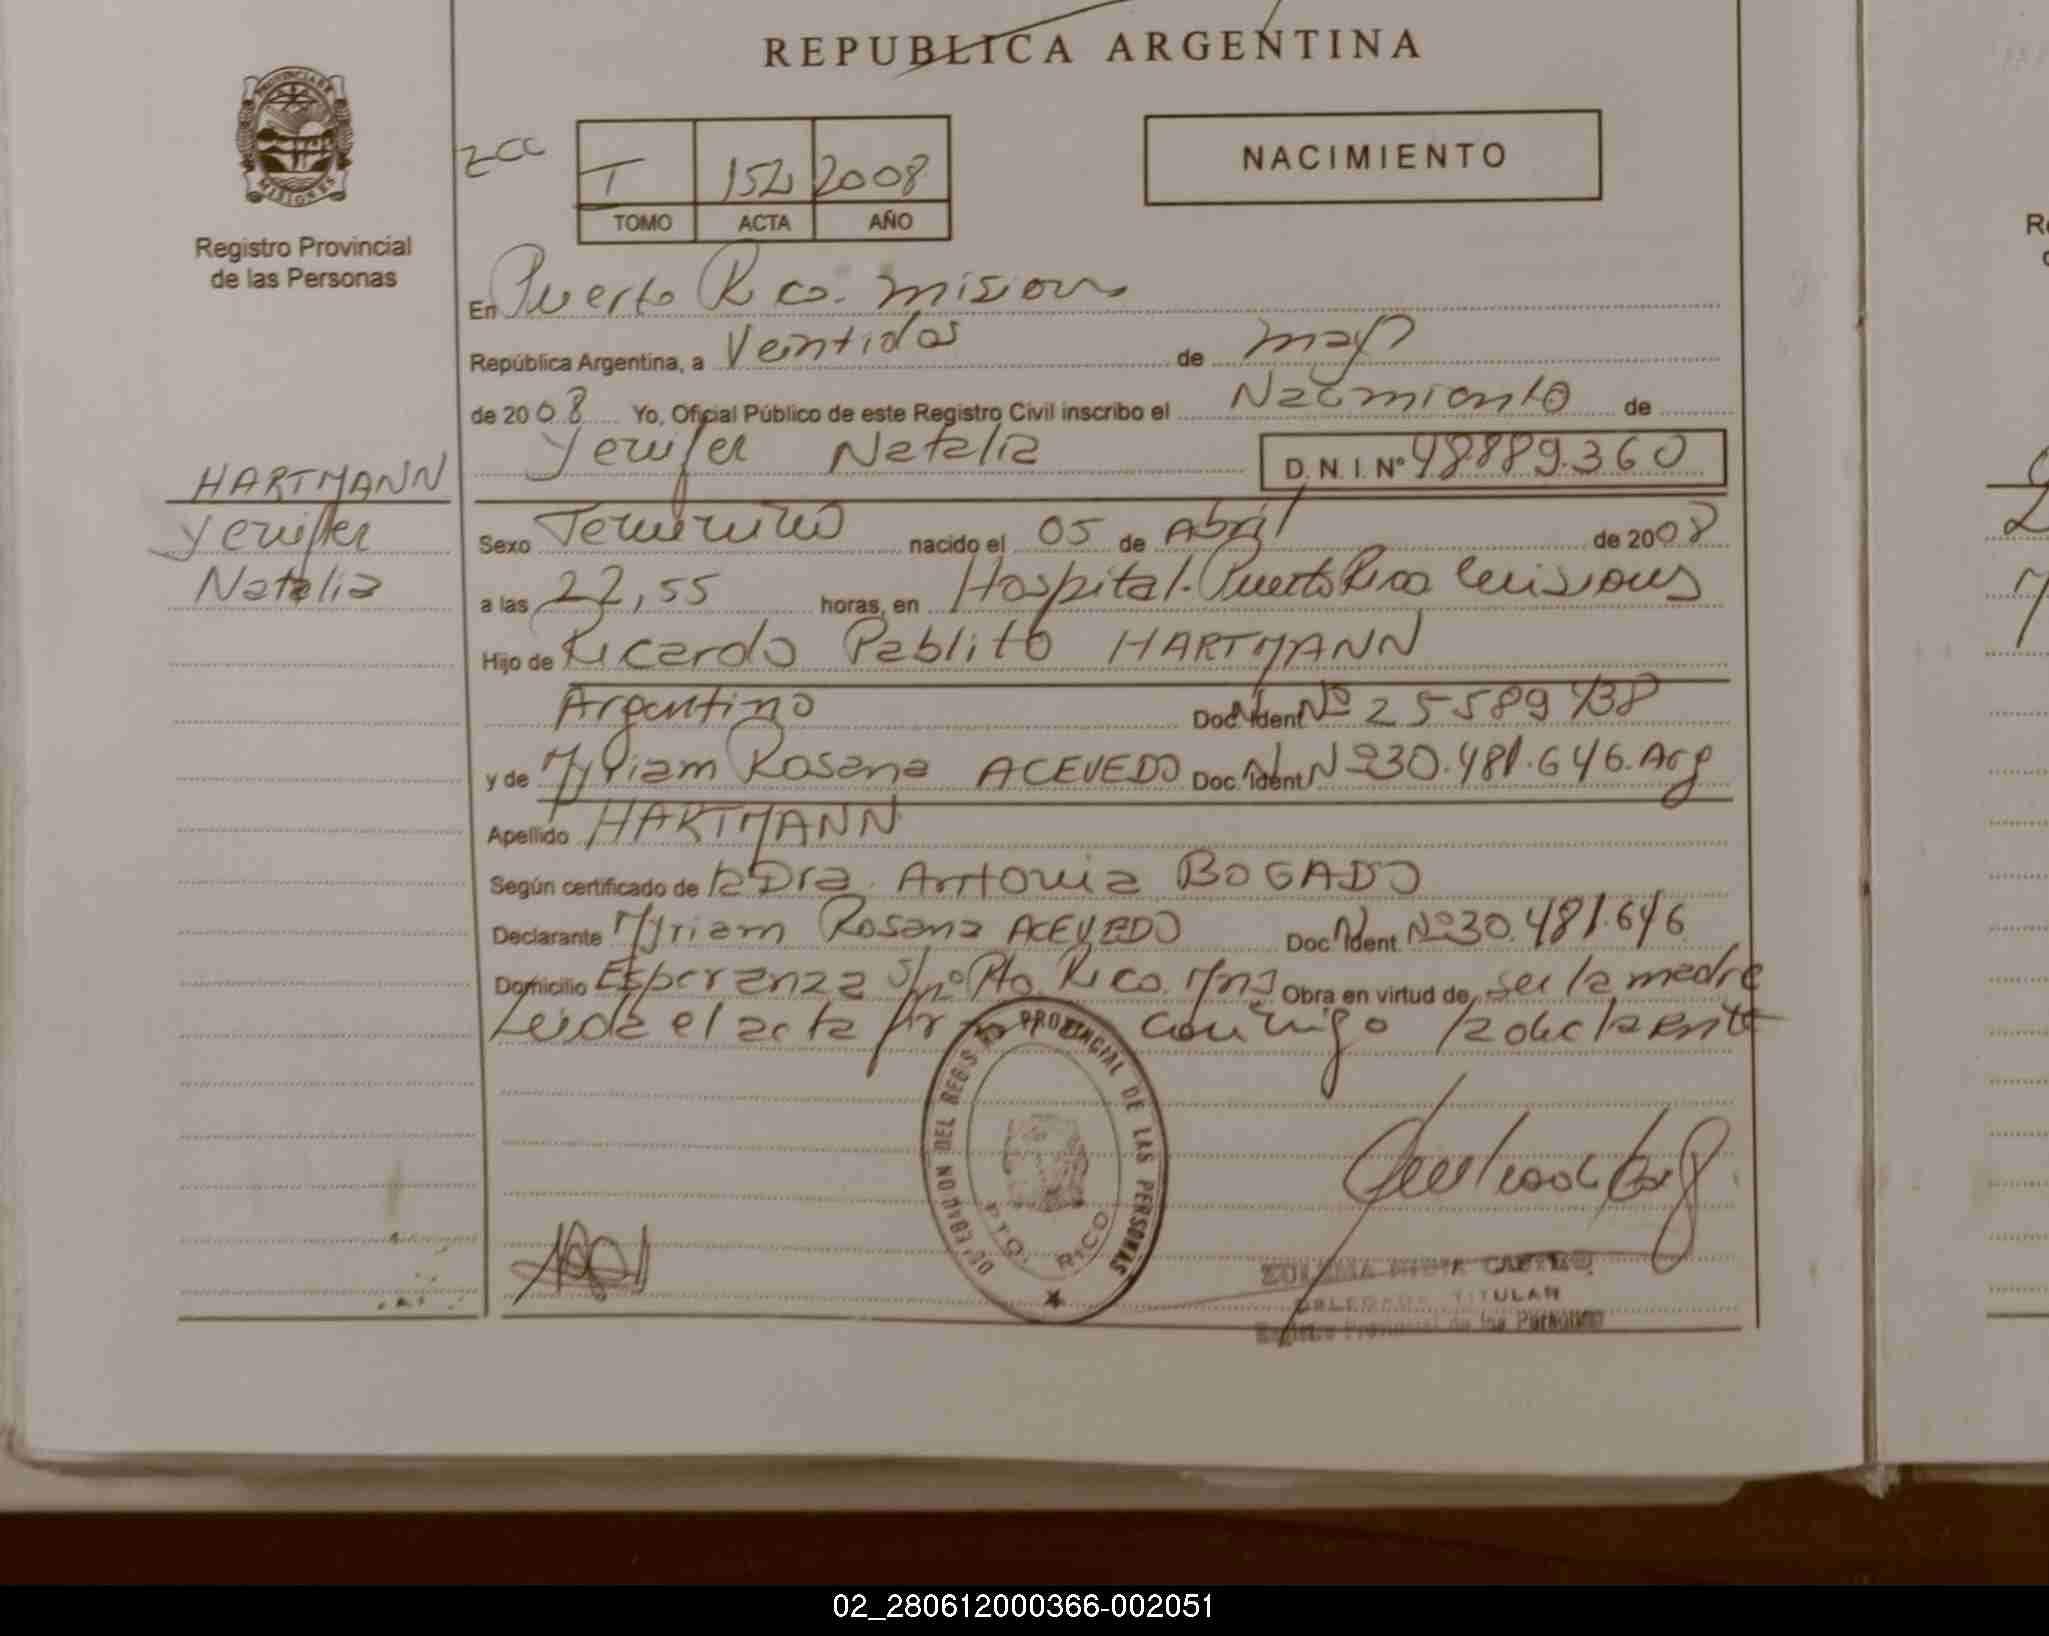 REPUBLICA ARGENTINA
PROVINCIA DE
MISIONES
Registro Provincial
de las Personas
ZCC
T 152 2008
TOMO ACTA AÑO
NACIMIENTO
En Puerto Rico. Misiones
República Argentina, a Veintidos de mayo
de 2008 Yo, Oficial Público de este Registro Civil inscribo el Nacimiento de
Yenifer Natalia D.N.I. Nº 48889.360
HARTMANN
Yenifer
Natalia
Sexo Femenino nacido el 05 de Abril de 2008
a las 22,55 horas, en Hospital. Puerto Rico Misiones
Hijo de Ricardo Pablito HARTMANN
Argentino Doc. Ident. Nº 25589438
y de Myriam Rosana ACEVEDO Doc. Ident. Nº 30.481.646. Arg
Apellido HARTMANN
Según certificado de la Dra. Antonia BOGADO
Declarante Myriam Rosana ACEVEDO Doc. Ident. Nº 30.481.646
Domicilio Esperanza S/nº Pto. Rico. Mns Obra en virtud de ser la madre
Leida el acta conmigo la declarante
PROVINCIAL DE LAS PERSONAS
PTO. RICO
CASTRO
TITULAR
Registro Provincial de las Personas
02_280612000366-002051